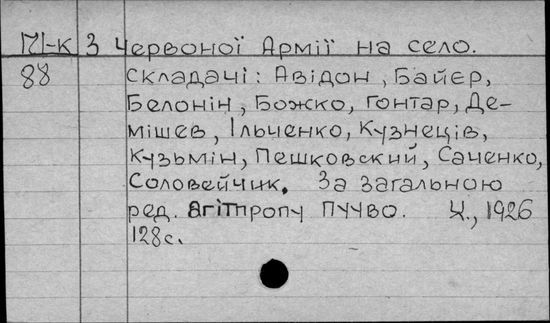 М-к З Червоної Армії на село.
88 Складачі: Авідон, Байєр,
Белонін, Божко, Гонтар, Де-
мішев, Ільченко, Кузнеців,
Кузьмін, Пешковский, Саченко,
Соловейчик. За загальною
ред. Агітпропу ПУУВО. Х., 1926
128с.